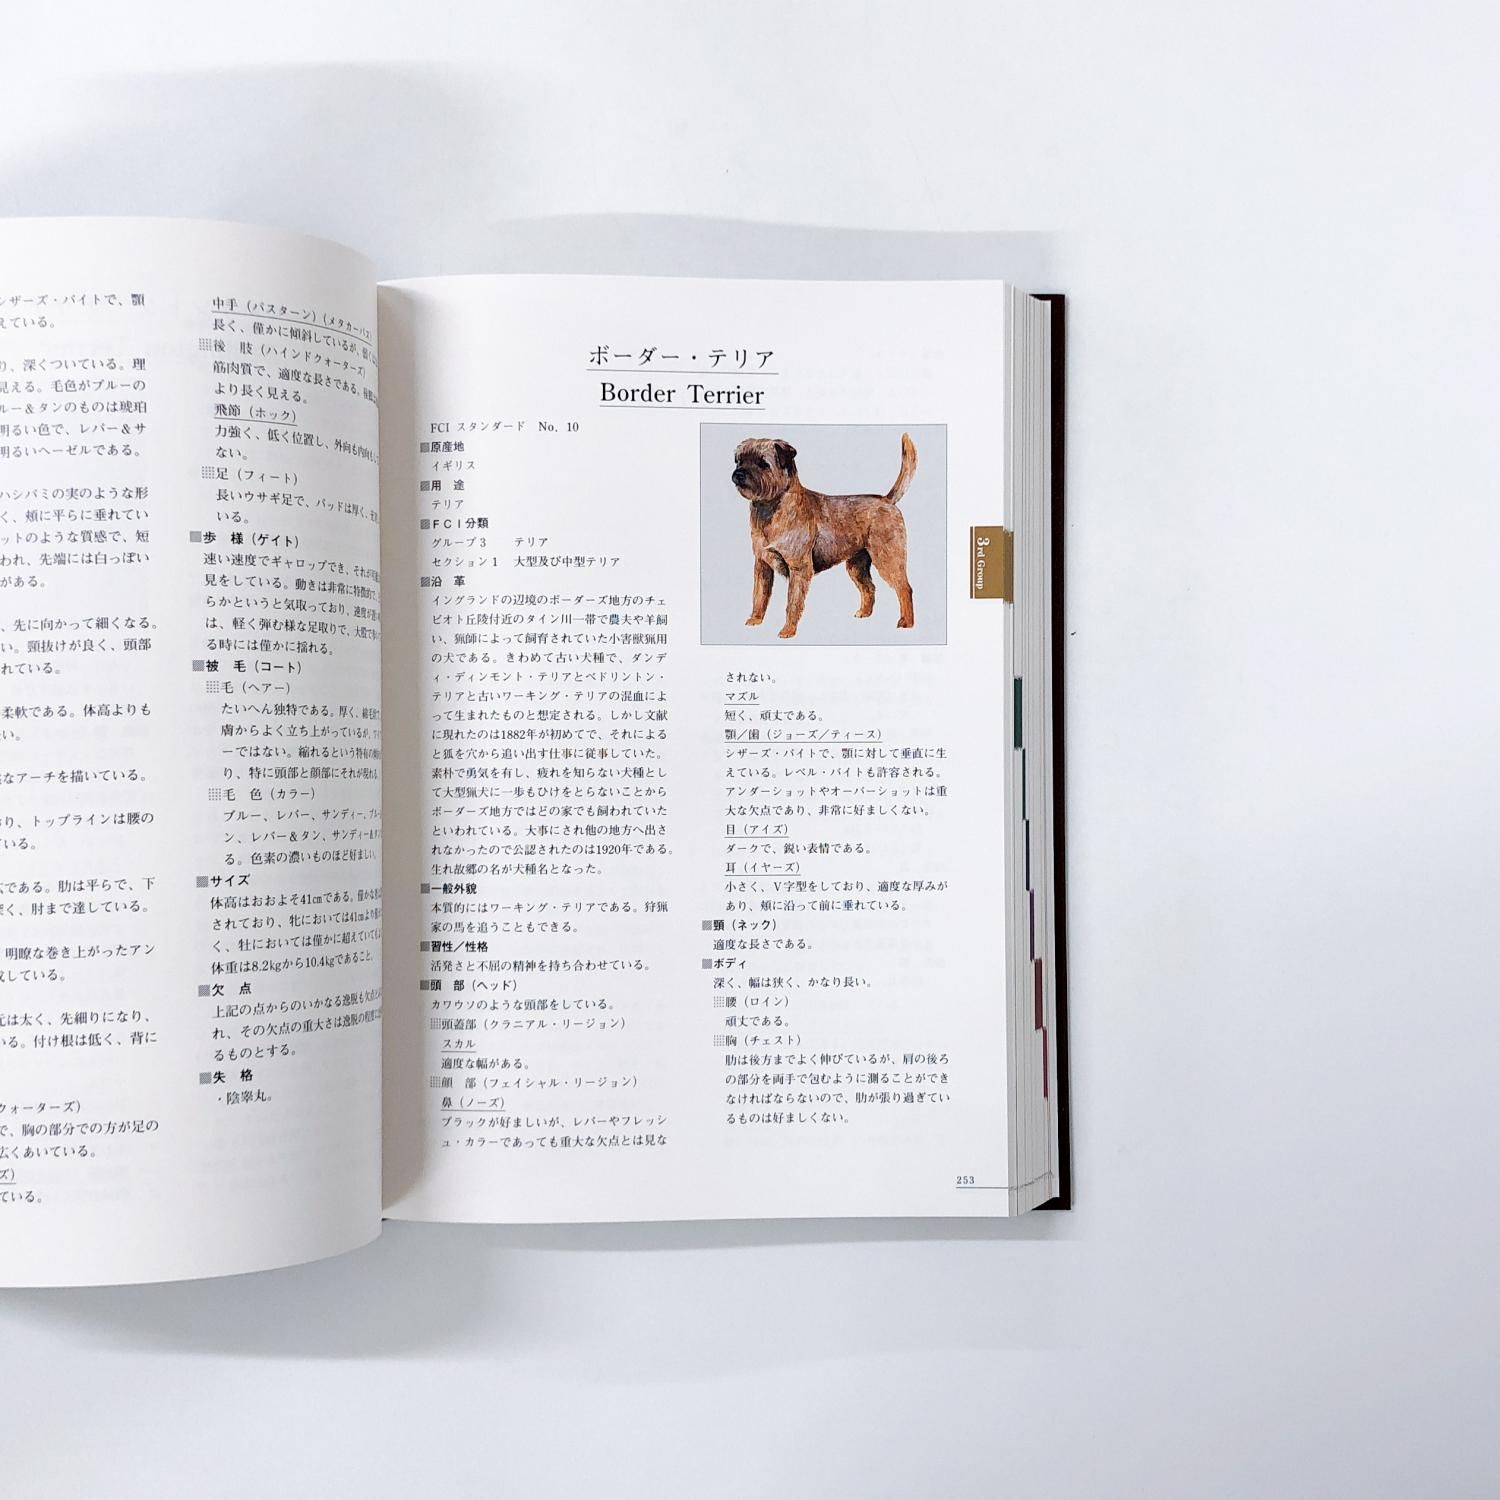 ンザーズ・バイトで、顎
えている。
り、深くついている。理
見える。毛色がブルーの
ルー&タンのものは琥珀
明るい色で、レバー&サ
明るいヘーゼルである。
ハシバミの実のような形
く、頬に平らに垂れてい
ットのような質感で、短
われ、先端には白っぽい
がある。
、先に向かって細くなる。
い。頸抜けが良く、頭部
れている。
柔軟である。体高よりも
い。
なアーチを描いている。
り、トップラインは腰の
いる。
広である。肋は平らで、下
深く、肘まで達している。
明瞭な巻き上がったアン
成している。
元は太く、先細りになり、
いる。付け根は低く、背に
クォーターズ)
で、胸の部分での方が足の
広くあいている。
ズ)
ている。
中手(パスターン)(メタカーパス)
長く、僅かに傾斜しているが、
後 肢(ハインドクォーターズ)
筋肉質で、適度な長さである。
より長く見える。
飛節(ホック)
力強く、低く位置し、外向も内向も
ない。
足(フィート)
長いウサギ足で、パッドは厚く、
いる。
歩 様(ゲイト)
速い速度でギャロップでき、それが
見をしている。動きは非常に特徴的で、
らかというと気取っており、速度が
は、軽く弾む様な足取りで、大股で
る時には僅かに揺れる。
被 毛(コート)
毛(ヘアー)
たいへん独特である。厚く、綿毛
膚からよく立ち上がっているが、
ーではない。縮れるという特有の
り、特に頭部と顔部にそれが現れる。
毛 色(カラー)
ブルー、レバー、サンディー、ブルー
ン、レバー&タン、サンディー&
る。色素の濃いものほど好ましい。
サイズ
体高はおおよそ41cmである。僅かな
されており、牝においては41cmより
く、牡においては僅かに超えていても
体重は8.2kgから10.4kgであること。
欠 点
上記の点からのいかなる逸脱も欠点
れ、その欠点の重大さは逸脱の程度に
るものとする。
失 格
・陰睾丸。
ボーダー・テリア
Border Terrier
FCI スタンダード No. 10
原産地
イギリス
用 途
テリア
FCI分類
グループ3 テリア
セクション1 大型及び中型テリア
沿 革
イングランドの辺境のボーダーズ地方のチェ
ビオト丘陵付近のタイン川一帯で農夫や羊飼
い、猟師によって飼育されていた小害獣猟用
の犬である。きわめて古い犬種で、ダンデ
ィ・ディンモント・テリアとベドリントン・
テリアと古いワーキング・テリアの混血によ
って生まれたものと想定される。しかし文献
に現れたのは1882年が初めてで、それによる
と狐を穴から追い出す仕事に従事していた。
素朴で勇気を有し、疲れを知らない犬種とし
て大型猟犬に一歩もひけをとらないことから
ボーダーズ地方ではどの家でも飼われていた
といわれている。大事にされ他の地方へ出さ
れなかったので公認されたのは1920年である。
生れ故郷の名が犬種名となった。
一般外貌
本質的にはワーキング・テリアである。狩猟
家の馬を追うこともできる。
習性/性格
活発さと不屈の精神を持ち合わせている。
頭 部(ヘッド)
カワウソのような頭部をしている。
頭蓋部(クラニアル・リージョン)
スカル
適度な幅がある。
顔 部(フェイシャル・リージョン)
鼻(ノーズ)
ブラックが好ましいが、レバーやフレッシ
ュ・カラーであっても重大な欠点とは見な
されない。
マズル
短く、頑丈である。
顎/歯(ジョーズ/ティース)
シザーズ・バイトで、顎に対して垂直に生
えている。レベル・バイトも許容される。
アンダーショットやオーバーショットは重
大な欠点であり、非常に好ましくない。
目(アイズ)
ダークで、鋭い表情である。
耳(イヤーズ)
小さく、V字型をしており、適度な厚みが
あり、頬に沿って前に垂れている。
頸(ネック)
適度な長さである。
ボディ
深く、幅は狭く、かなり長い。
腰(ロイン)
頑丈である。
胸(チェスト)
肋は後方までよく伸びているが、肩の後ろ
の部分を両手で包むように測ることができ
なければならないので、肋が張り過ぎてい
るものは好ましくない。
3rd Group
253